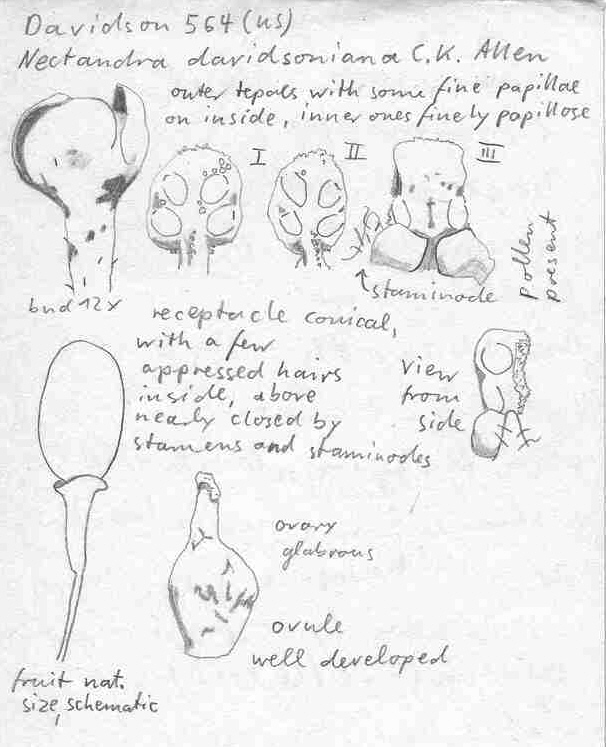 Davidson 564 (US)
Nectandra davidsoniana C.K. Allen
outer tepals with some fine papillae
on inside, inner ones finely papillose
I
II
III
bud 12x
staminode
Pollen
present
receptacle conical,
with a few
appressed hairs
inside, above
nearly closed by
stamens and staminodes
view
from
side
ovary
glabrous
ovule
well developed
fruit nat.
size, schematic